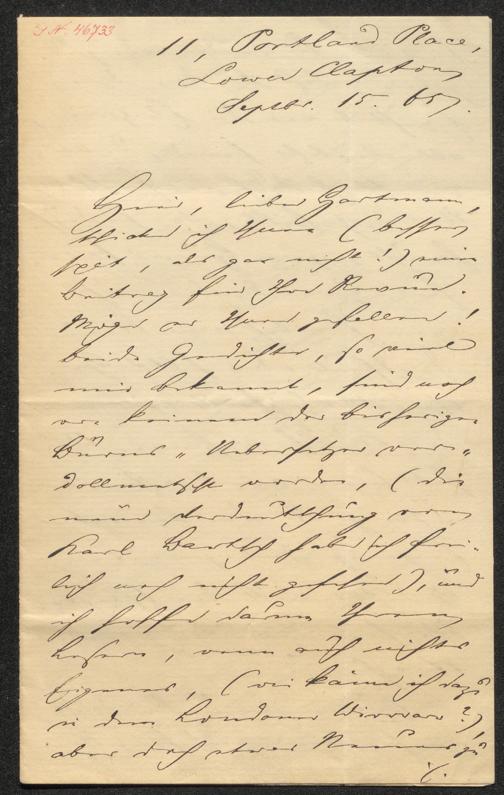 I. N. 46733
11, Portland Place,
Lower Clapton,
Septbr. 15. 65.
Hier, lieber Hartmann,
schicke ich Ihnen (besser
spät, als gar nicht!) mein
Beitrag für Ihre Revüe.
Möge er Ihnen gefallen!
Beide Gedichte, so viel
mir bekannt, sind noch
von keinem der bisherigen
Burns-Uebersetzer ver-
dollmetscht worden, (die
neue Verdeutschung von
Karl Bartsch habe ich frei-
lich noch nicht gesehen), und
ich hoffe darum Ihren
Lesern, wenn auch nichts
Eigenes, (wie käme ich dazu
in dem Londoner Wirrwarr?),
aber doch etwas Neues zu
./.